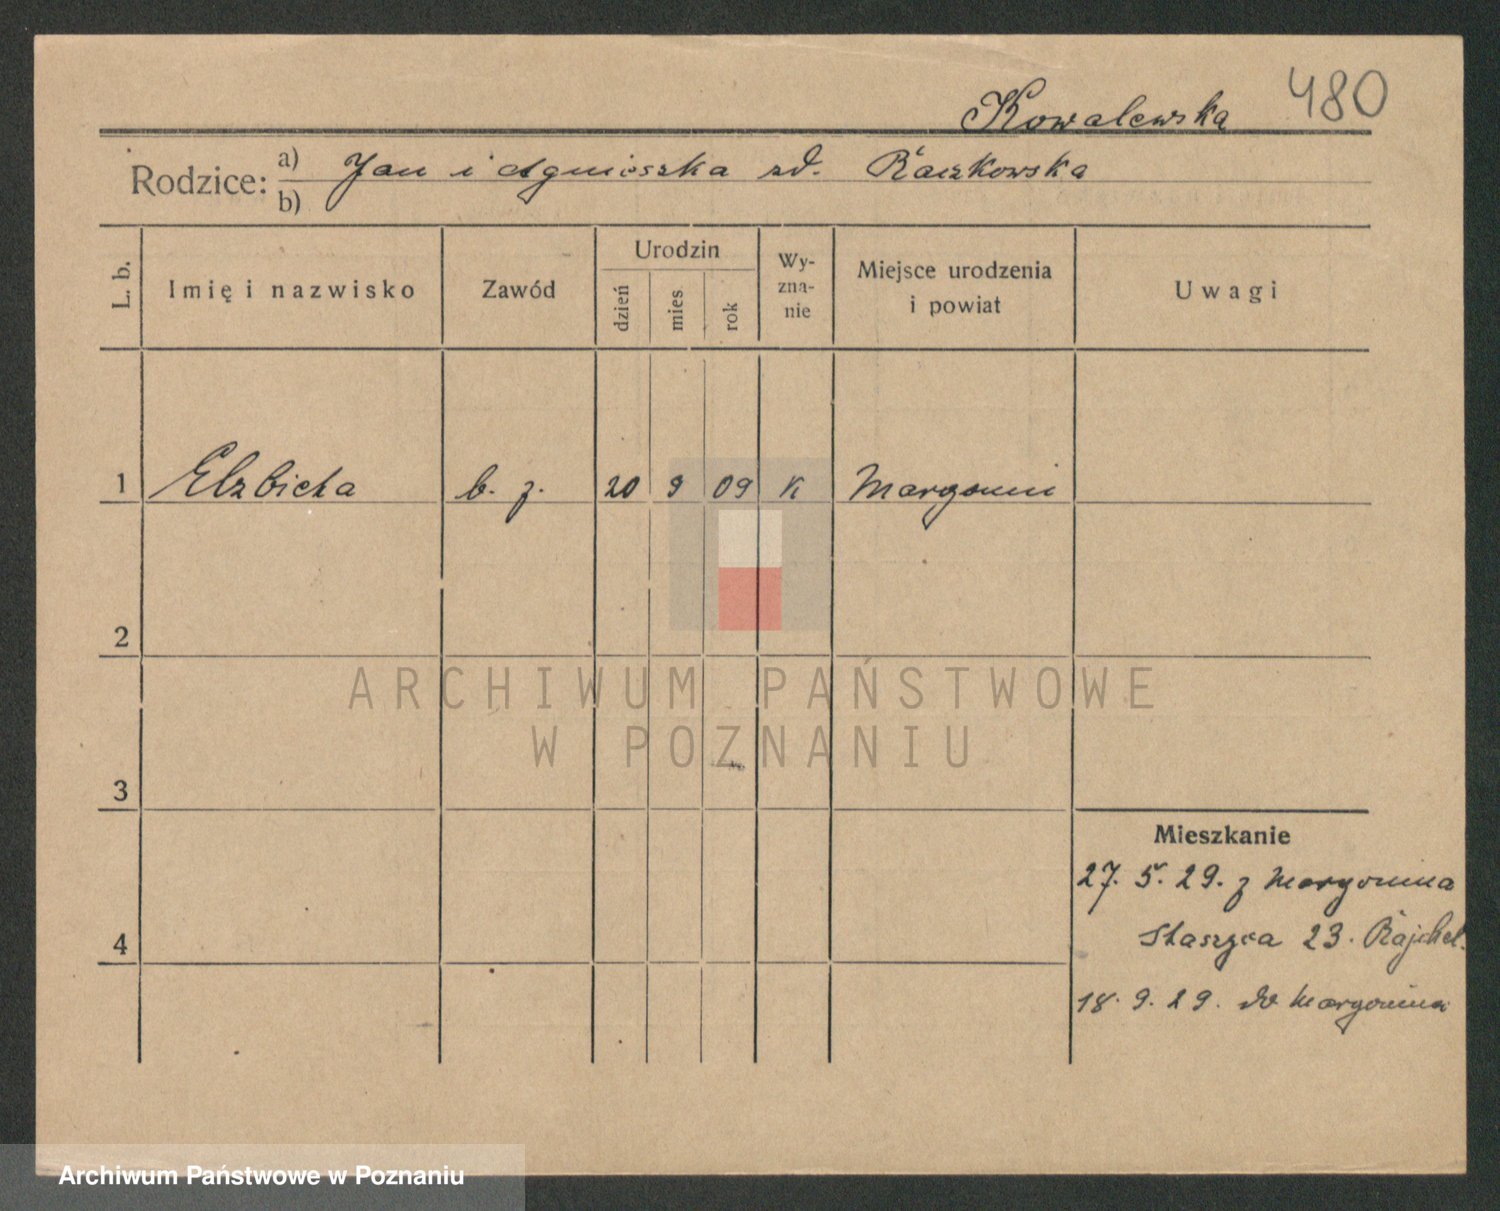 480
Kowalewska
Rodzice: a) Jan i Agnieszka zd. Raczkowska
b)
L. b. Imię i nazwisko Zawód Urodzin dzień mies rok Wyznanie Miejsce urodzenia i powiat Uwagi
1 Elzbieta b. z. 20 9 09 K Margonin
2
ARCHIWUM PAŃSTWOWE
W POZNANIU
3
Mieszkanie
27. 5. 29. z Margonina
Staszyca 23. Rajchel.
4
18. 9. 29. do Margonina
Archiwum Państwowe w Poznaniu